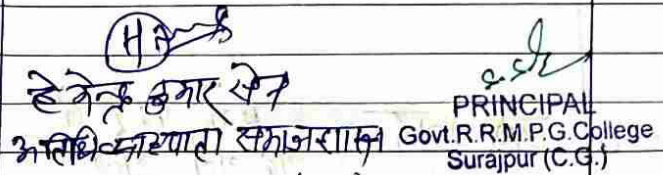 हेमेन्द्र कुमार सेन
अतिथि व्याख्याता समाजशास्त्र
PRINCIPAL
Govt.R.R.M.P.G.College
Surajpur (C.G.)